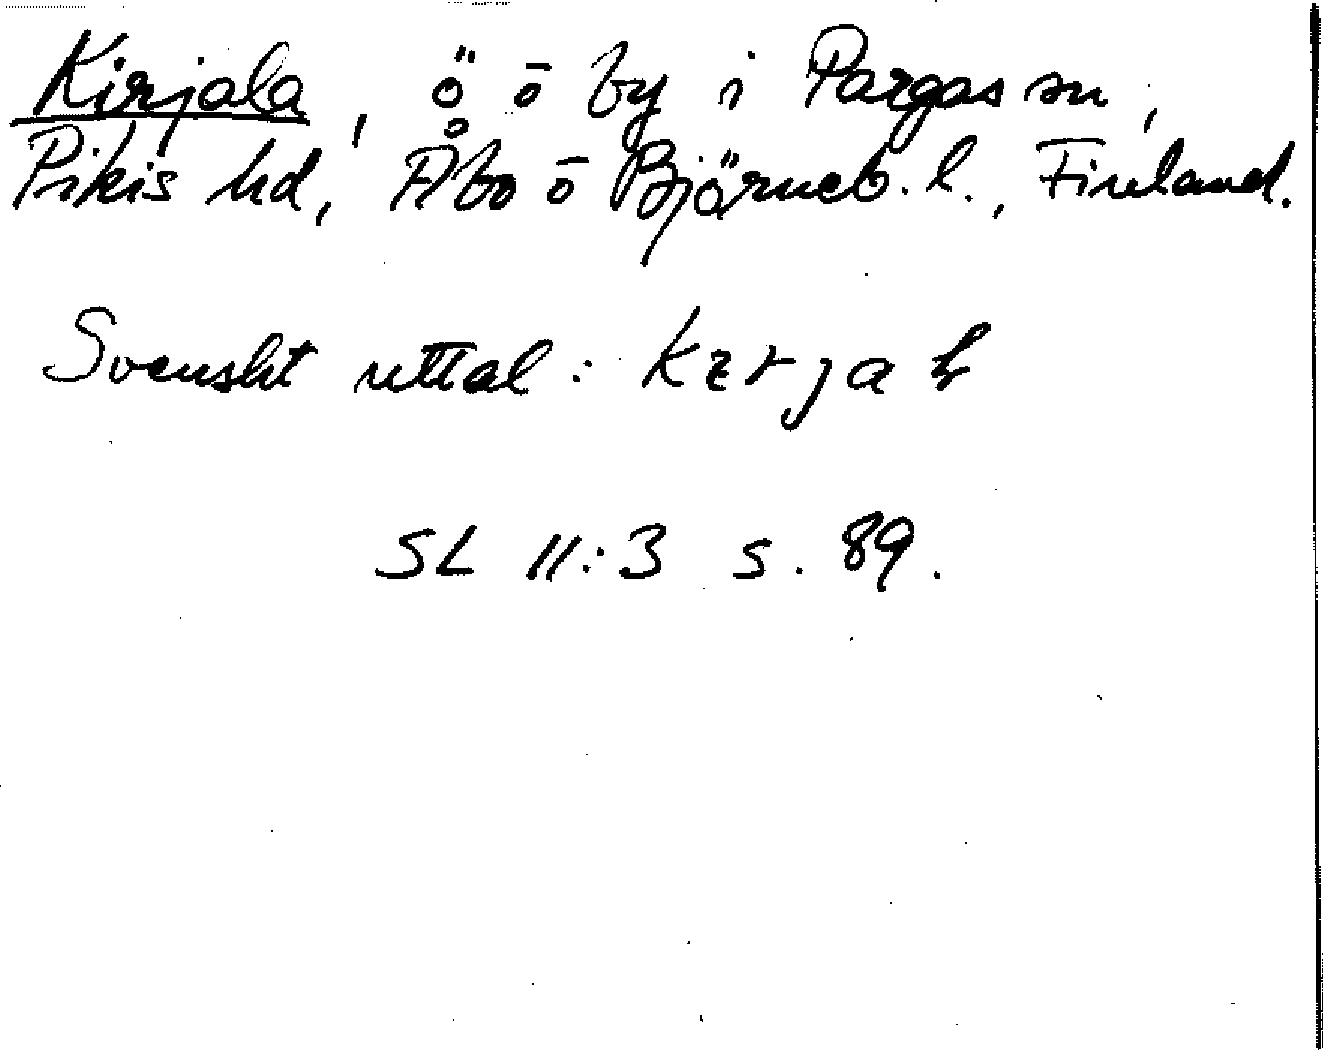 Kirjala, ö ō by i Pargas sn,
Pikis hd, Åbo ō Björneb. l., Finland.
Svenskt uttal:
SL 11:3 s. 89.